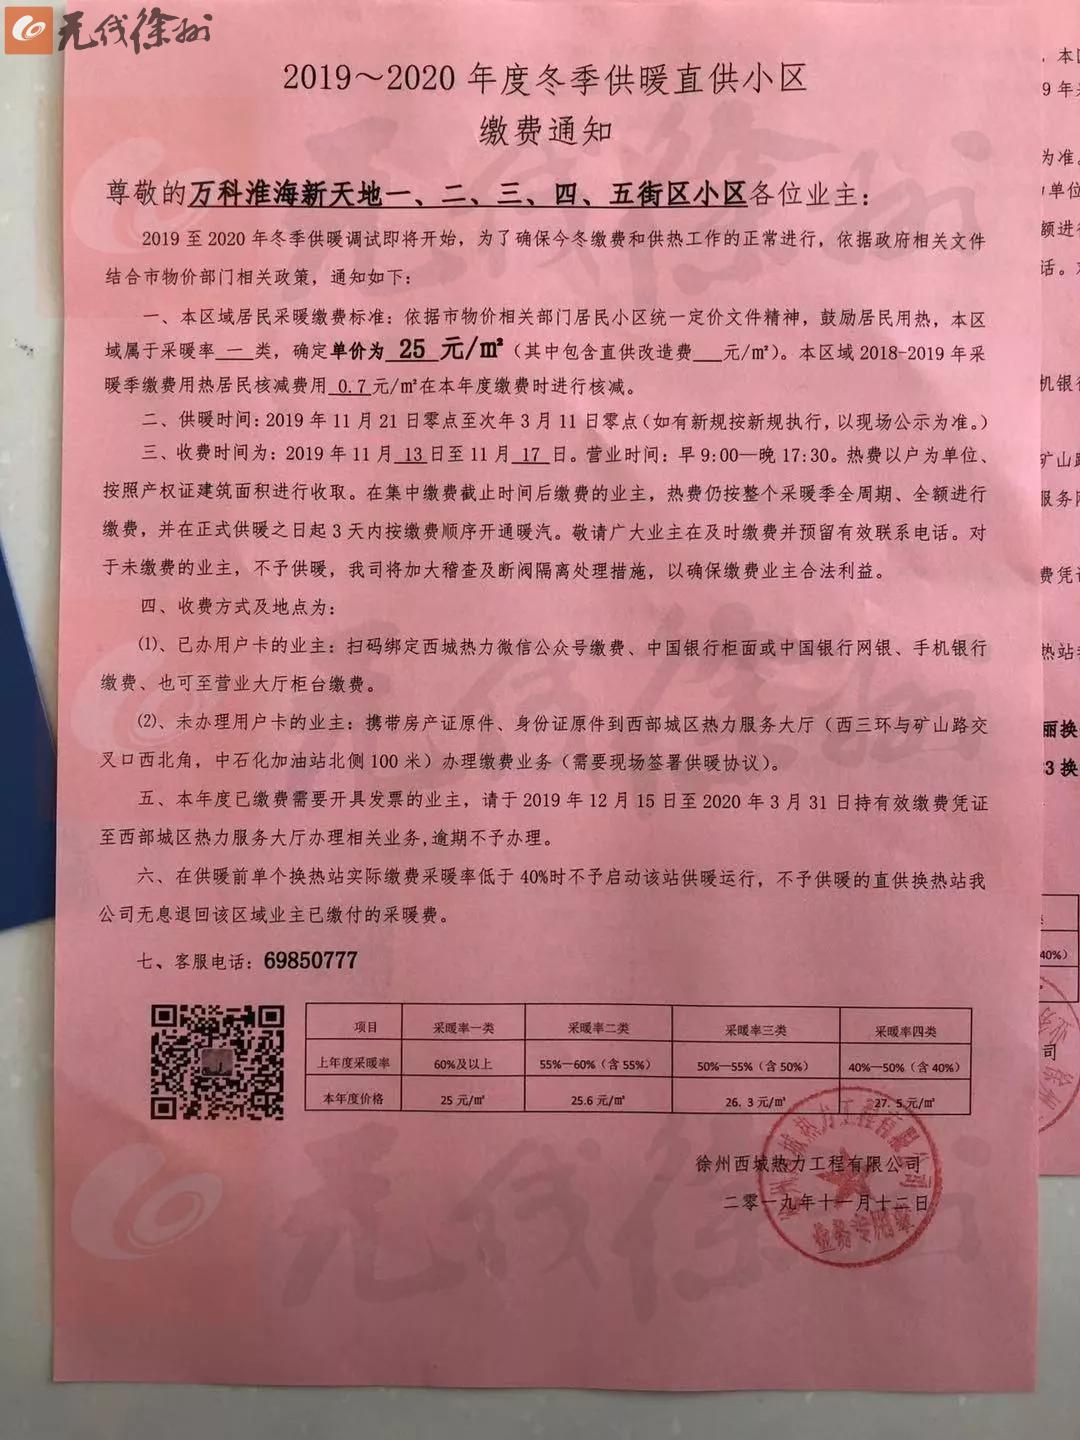 无线徐州
2019～2020 年度冬季供暖直供小区
缴费通知
尊敬的万科淮海新天地一、二、三、四、五街区小区各位业主：
2019 至 2020 年冬季供暖调试即将开始，为了确保今冬缴费和供热工作的正常进行，依据政府相关文件
结合市物价部门相关政策，通知如下：
一、本区域居民采暖缴费标准：依据市物价相关部门居民小区统一定价文件精神，鼓励居民用热，本区
域属于采暖率 一 类，确定单价为 25 元/㎡（其中包含直供改造费___元/㎡）。本区域 2018-2019 年采
暖季缴费用热居民核减费用 0.7 元/㎡在本年度缴费时进行核减。
二、供暖时间：2019 年 11 月 21 日零点至次年 3 月 11 日零点（如有新规按新规执行，以现场公示为准。）
三、收费时间为：2019 年 11 月 13 日至 11 月 17 日。营业时间：早 9:00—晚 17:30。热费以户为单位、
按照产权证建筑面积进行收取。在集中缴费截止时间后缴费的业主，热费仍按整个采暖季全周期、全额进行
缴费，并在正式供暖之日起 3 天内按缴费顺序开通暖汽。敬请广大业主在及时缴费并预留有效联系电话。对
于未缴费的业主，不予供暖，我司将加大稽查及断阀隔离处理措施，以确保缴费业主合法利益。
四、收费方式及地点为：
⑴、已办用户卡的业主：扫码绑定西城热力微信公众号缴费、中国银行柜面或中国银行网银、手机银行
缴费、也可至营业大厅柜台缴费。
⑵、未办理用户卡的业主：携带房产证原件、身份证原件到西部城区热力服务大厅（西三环与矿山路交
叉口西北角，中石化加油站北侧 100 米）办理缴费业务（需要现场签署供暖协议）。
五、本年度已缴费需要开具发票的业主，请于 2019 年 12 月 15 日至 2020 年 3 月 31 日持有效缴费凭证
至西部城区热力服务大厅办理相关业务,逾期不予办理。
六、在供暖前单个换热站实际缴费采暖率低于 40%时不予启动该站供暖运行，不予供暖的直供换热站我
公司无息退回该区域业主已缴付的采暖费。
七、客服电话：69850777
项目 采暖率一类 采暖率二类 采暖率三类 采暖率四类
上年度采暖率 60%及以上 55%—60%（含 55%） 50%—55%（含 50%） 40%—50%（含 40%）
本年度价格 25 元/㎡ 25.6 元/㎡ 26.3 元/㎡ 27.5 元/㎡
徐州西城热力工程有限公司
二零一九年十一月十二日